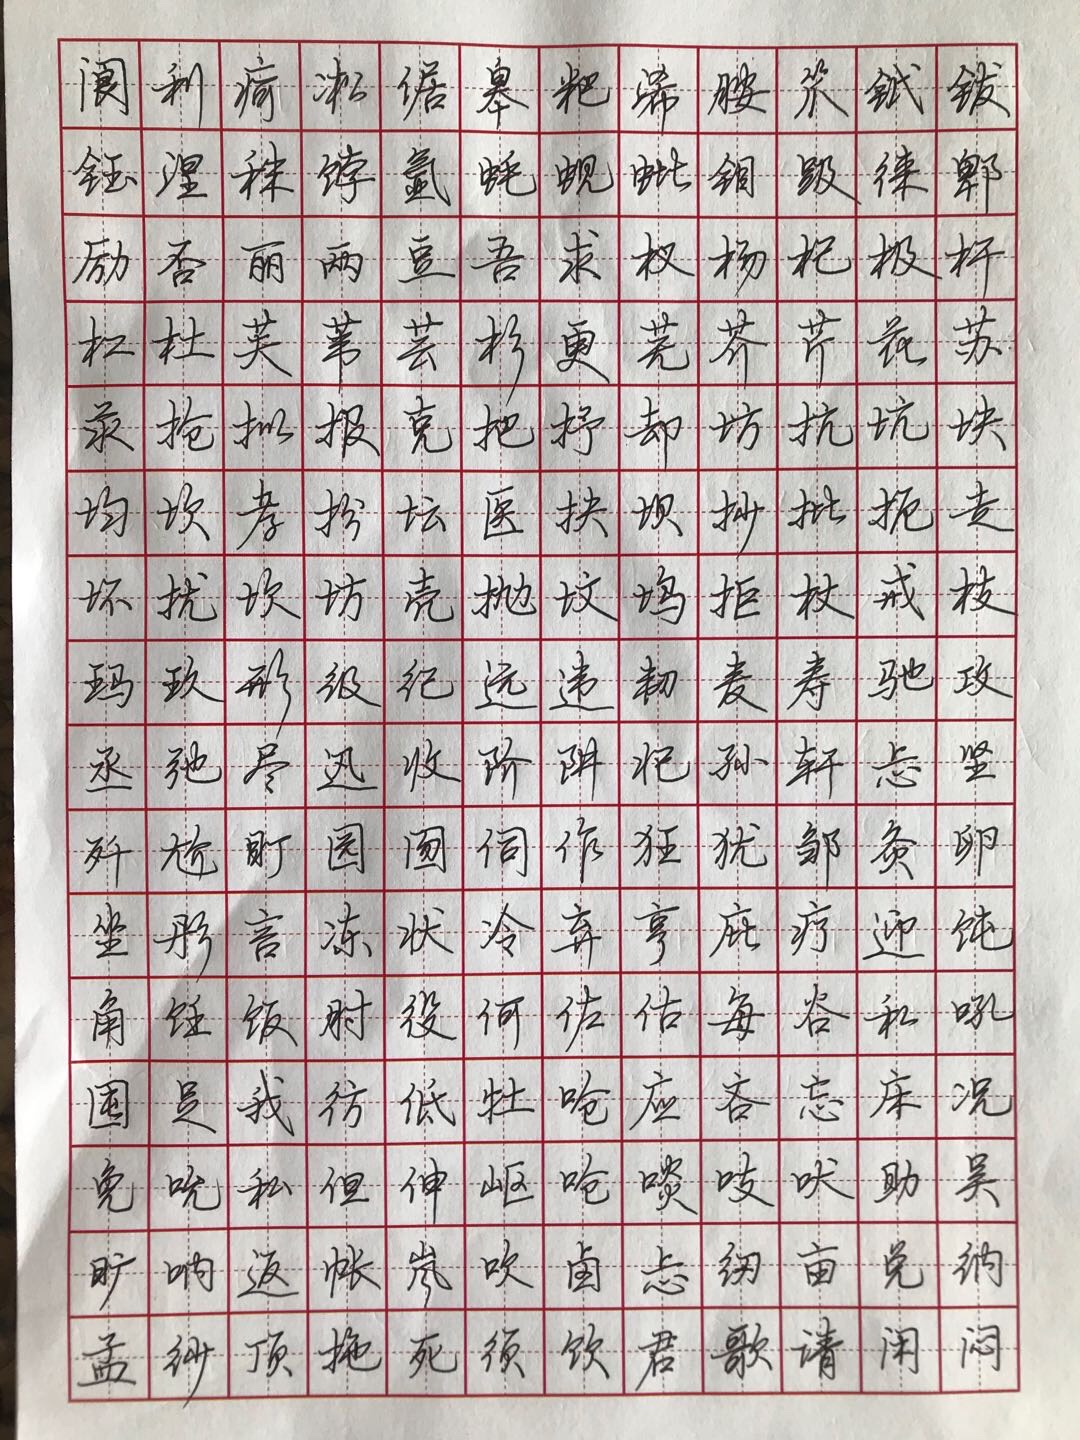 阆利痛凇倨皋粑胺笊钺钹
钰涅秣饽氩蚝蚬蚍钼毁徕郫
励否丽两豆吾求杈杨杞极杆
杠杜芙苇芸杉更芜芥芹花苏
汞抢拟报克把抒却坊抗坑块
均坎孝扮坛医抉坝抄批扼走
坏扰坎坊壳抛坟坞拒杖戒枝
玛玖形级纪远违韧麦寿驰攻
丞弛尽迅收阶阱妃孙轩忐坚
歼尬盯园囫伺作狂犹邹灸卵
坐彤言冻状冷弃亨庇疗迎饨
角饪饭肘役何佐估每谷私吼
围足我彷低牡呛应吝忘床况
免吮私但伸岖呛啖吱吠助吴
旷呐返帐岚吹卤忐纫亩兑纳
孟纱顶拖死须饮君歌请闲闷